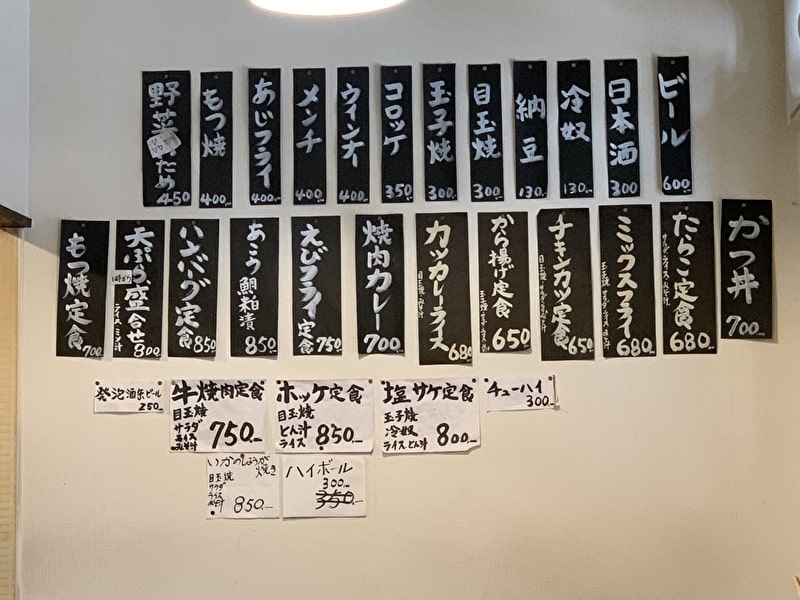 ビール
600
日本酒
300
冷奴
130.-
納豆
130.-
目玉焼
300.-
玉子焼
300.-
コロッケ
350
ウインナー
400.-
メンチ
400
あじフライ
400.-
もつ焼
400.-
野菜いため
450
かつ丼
700.-
たらこ定食
680.-
ミックスフライ
680.-
チキンカツ定食
650
から揚げ定食
650
カツカレーライス
680
焼肉カレー
700
えびフライ定食
750
あこう鯛粕漬
850
ハンバーグ定食
850
天ぷら盛合せ
ライス・ミソ汁
800
もつ焼定食
700
発泡酒缶ビール
250.-
牛焼肉定食
目玉焼
サラダ
ライス
みそ汁
750.-
ホッケ定食
目玉焼
とん汁
ライス
850.-
塩サケ定食
玉子焼
冷奴
ライスとん汁
800.-
チューハイ
300.-
いかのしょうが焼き
目玉焼
サラダ
ライス
850.-
ハイボール
300.-
350.-